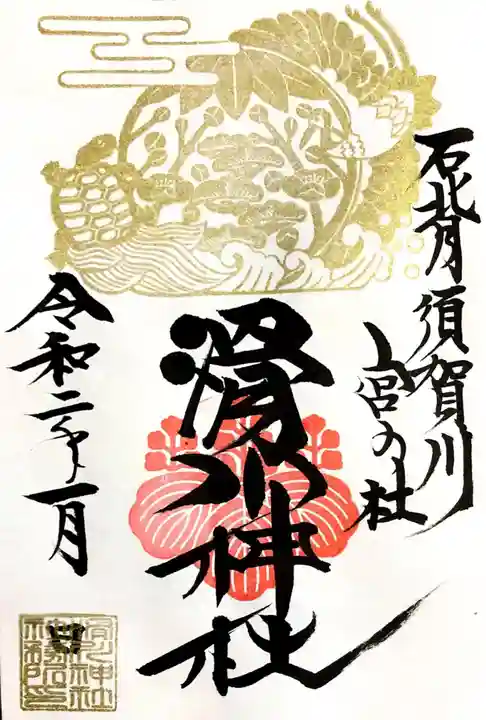 石背須賀川
上宮の杜
滑川神社
令和二年一月